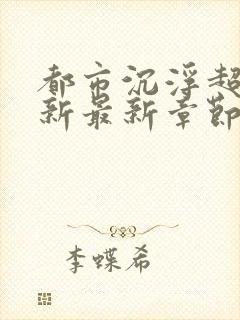 都市沉浮超
新最新章節
李蝶希